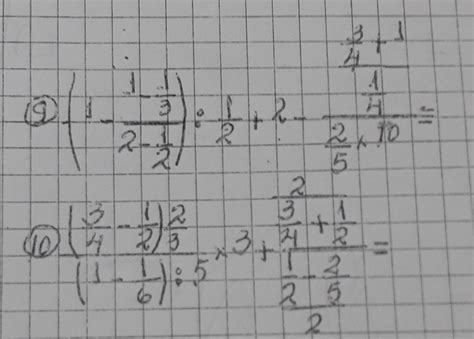 ⑨ (1 - (1 - 1/3)/(2 - 1/2)) : 1/2 + 2 - ((3/4 + 1)/(1/4))/(2/5 × 10) =
⑩ ((3/4 - 1/2) 2/3)/((1 - 1/6) : 5) × 3 + (2/(3/4 + 1/2))/((1/2 - 2/5)/2) =